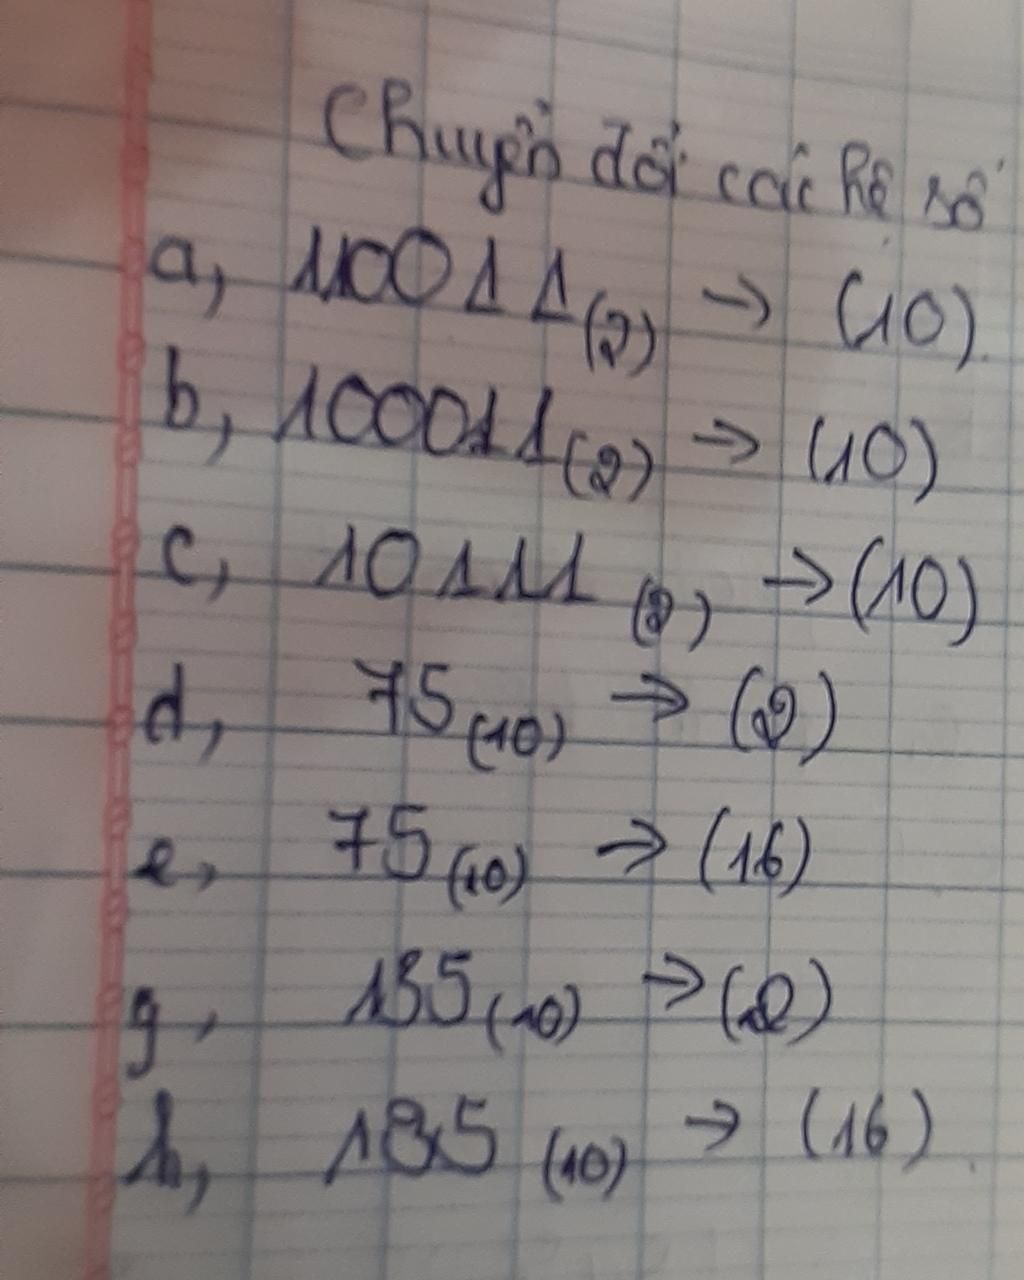 Chuyển đổi các hệ số
a, 110011(2) → (10)
b, 100011(2) → (10)
c, 10111(2) → (10)
d, 75(10) → (2)
e, 75(10) → (16)
g, 135(10) → (2)
h, 185(10) → (16)